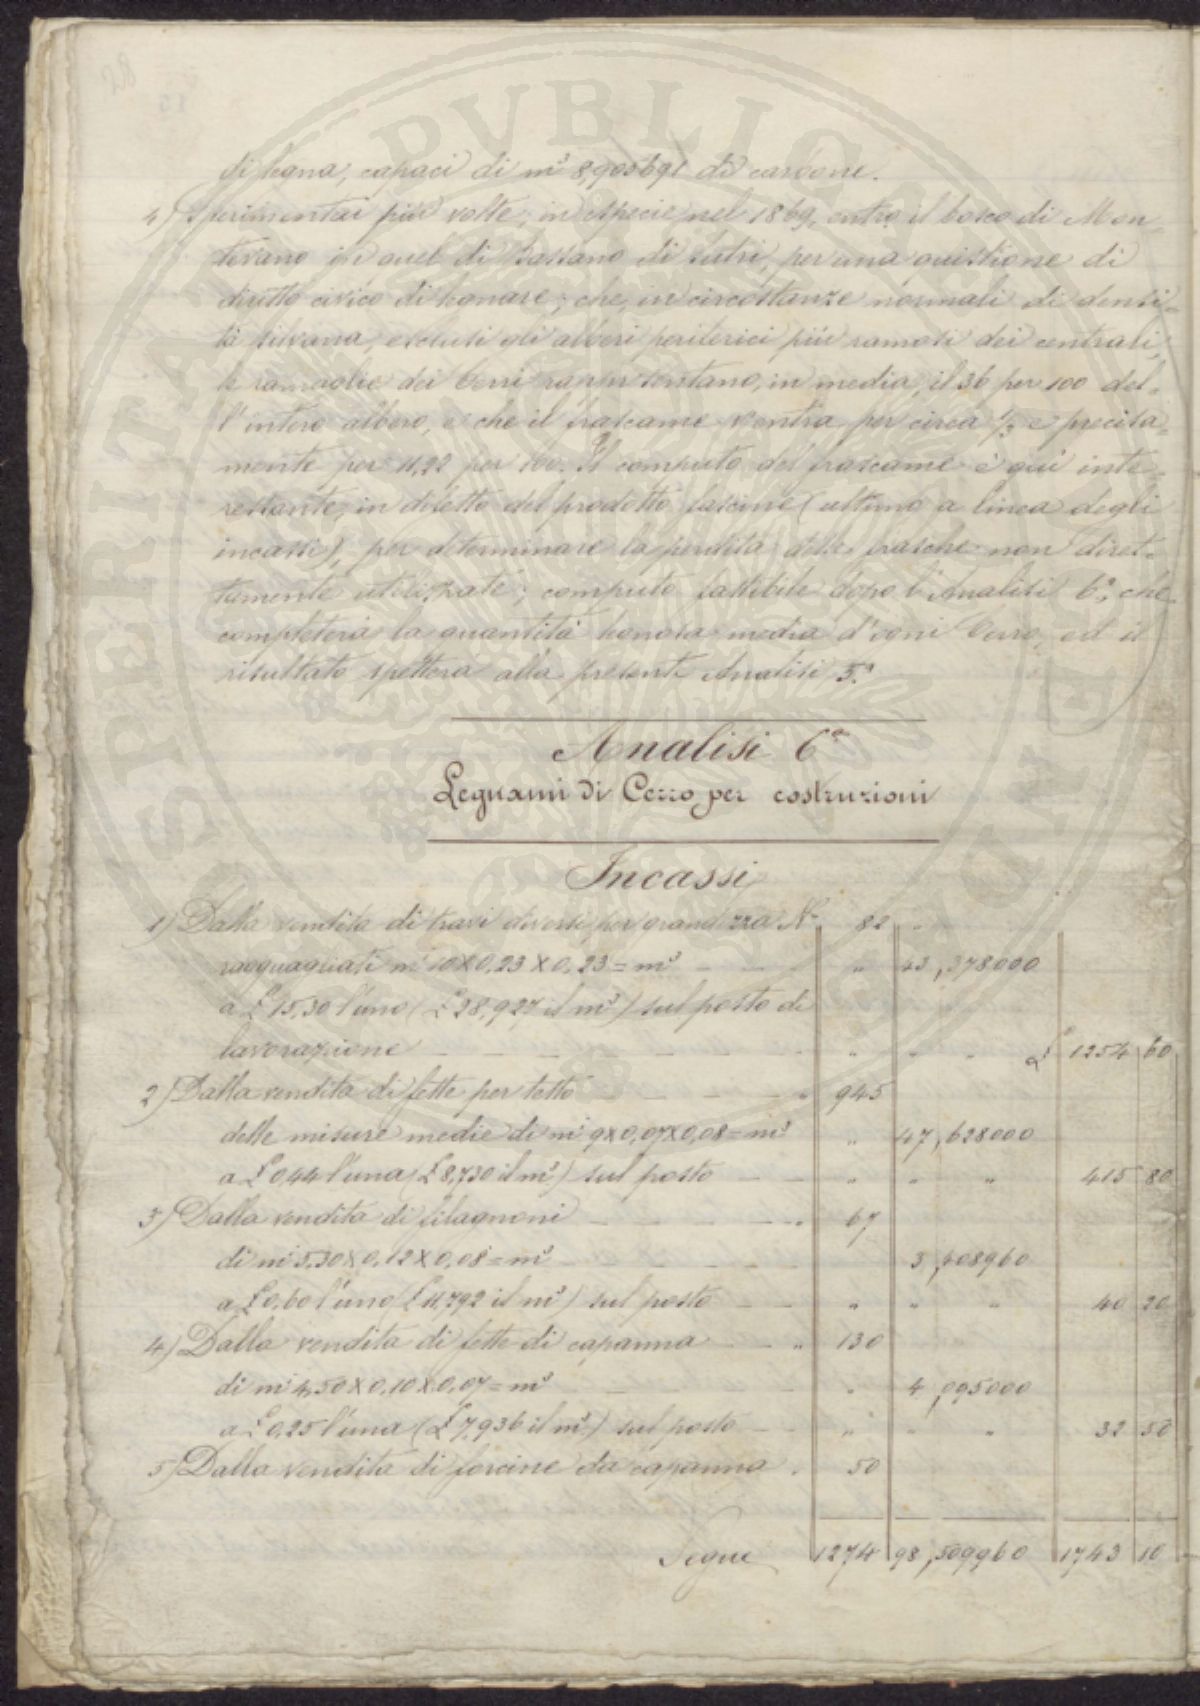 di legna, capaci di m³ 8,905691 di carbone.
4) Sperimentai più volte, in ispecie nel 1869, entro il bosco di Mon=
terano in quel di Bassano di Sutri, per una quistione di
diritto civico di legnare; che, in circostanze normali di densi=
tà silvana, esclusi gli alberi periferici più ramosi dei centrali,
le ramaglie dei Cerri rappresentano, in media, il 36 per 100 del=
l'intero albero, e che il frascame v'entra per circa 1/3 e precisa=
mente per 11,22 per 100. Il computo del frascame è qui inte=
ressante, in difetto del prodotto fascine (ultimo a linea degli
incassi), per determinare la perdita delle frasche non diret=
tamente utilizzate; computo fattibile dopo l'Analisi 6ª, che
completerà la quantità legnosa media d'ogni Cerro, ed il
risultato spetterà alla presente Analisi 5ª
Analisi 6ª
Legnami di Cerro per costruzioni
Incassi
1) Dalla vendita di travi diversi per grandezza N° 82 "
ragguagliati m¹ 10X0,23X0,23=m³ — — " 43,378000
a £ 15,30 l'uno (£ 28,927 il m³) sul posto di
lavorazione — — — — — — " " " £ 1254 60
2) Dalla vendita di fette per tetto — — — " 945
delle misure medie di m¹ 9X0,07X0,08=m³ " 47,628000
a £ 0,44 l'una (£ 8,730 il m³) sul posto — — " " " 415 80
3) Dalla vendita di filagnoni — — — " 67
di m¹ 5.30X0.12X0.08=m³ — — — 3,408960
a £ 0,60 l'uno (£ 11,792 il m³) sul posto — — " " " 40 20
4) Dalla vendita di fette di capanna — — " 130
di m¹ 4,50X0,10X0,07=m³ — — " 4,095000
a £ 0,25 l'una (£ 7,936 il m³) sul posto — — " " " 32 50
5) Dalla vendita di forcine da capanna " 50
Segue 1274 98,509960 1743 10